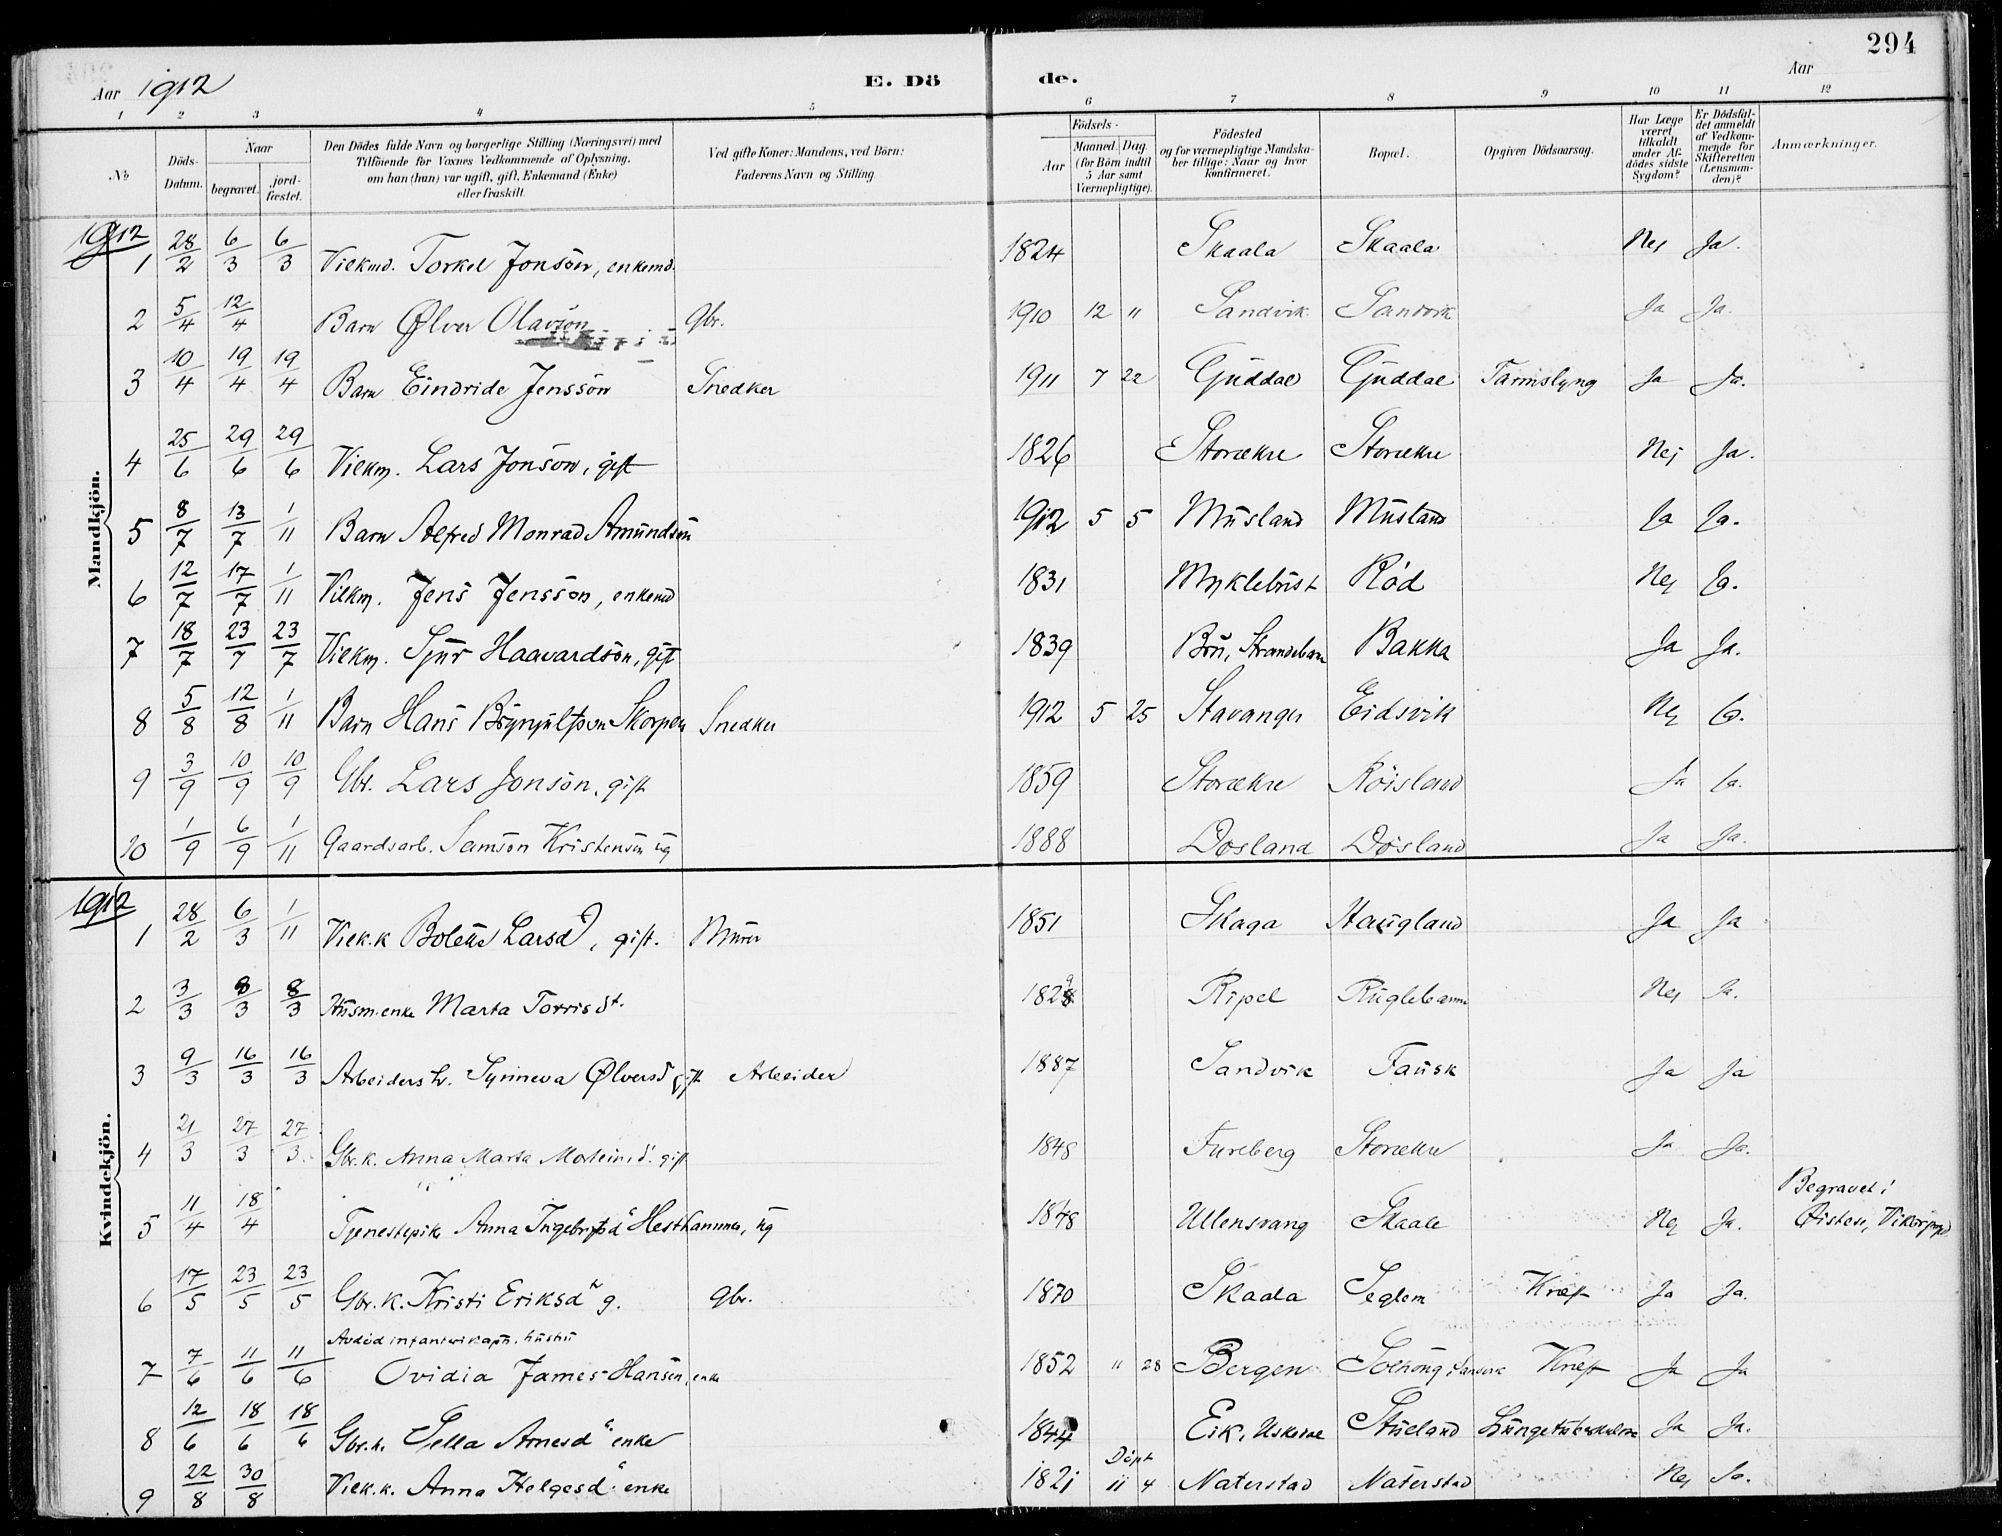 294
Aar 1912 E. Dö de. Aar
1 2 3 4 5 6 7 8 9 10 11 12
No
Döds-Datum.
Naar
begravet.
jord-fæstet.
Den Dödes fulde Navn og borgerlige Stilling (Næringsvei) med
Tilföiende for Voxnes Vedkommende af Oplysning,
om han (hun) var ugift, gift, Enkemand (Enke)
eller fraskilt.
Ved gifte Koner: Mandens, ved Börn:
Faderens Navn og Stilling.
Födsels-
Aar
Maaned. Dag.
(for Börn indtil
5 Aar samt
Værnepligtige).
Födested
og for værnepligtige Mandska-
ber tillige: Naar og hvor
konfirmeret.
Bopæl.
Opgiven Dödsaarsag.
Har Læge
været
tilkaldt
under Af-
dödes sidste
Sygdom?
Er Dödsfal-
det anmeldt
af Vedkom-
mende for
Skifteretten
(Lensman-
den)?
Anmærkninger.
Mandkjön.
1912
1 28/2 6/3 6/3 Vilkmd. Torkel Jonsön, enkemd. 1824 Skaala Skaala Nej Ja.
2 5/4 12/4 Barn Ølver Olavson Gbr. 1910 12 " Sandvik Sandvik Ja Ja.
3 10/4 19/4 19/4 Barn Eindride Jenssön Snedker 1911 7 22 Guddal Guddal Tarmslyng Ja Ja.
4 25/6 29/6 29/6 Vilkm. Lars Jonson, gift 1826 Storækre Storækre Nej Ja.
5 8/7 13/7 1/11 Barn Alfred Monrad Amundsön 1912 5 5 Musland Musland Ja Ja.
6 12/7 17/7 1/11 Vilkm. Jens Jensson, enkemd 1831 Myklebust Rød Nej Ja.
7 18/7 23/7 23/7 Vilkm. Sjur Haavardsön, gift 1839 Bru, Strandebarm Bakka Ja Ja.
8 5/8 12/8 1/11 Barn Hans Skorpen Snedker 1912 5 25 Stavanger Eidsvik Nej Ja.
9 3/9 10/9 10/9 Gbr. Lars Jonsön, gift 1859 Storækre Röisland Ja Ja.
10 1/9 6/9 1/11 Gaardsarb. Samson Kristensön ug 1888 Dosland Dösland Ja Ja.
Kvindekjön.
1912
1 28/2 6/3 1/11 Vilk.k Bolette Larsd, gift. Murer 1851 Skaga Haugland Ja Ja
2 3/3 8/3 8/3 Husm.enke Marta Torrisdt. 1829 Ripel Nej Ja.
3 9/3 16/3 16/3 Arbeiders h. Synneva Ølversd gift Arbeider 1887 Sandvik Fausk Ja Ja
4 21/3 27/3 27/3 Gbr.k. Anna Marta gift 1848 Fureberg Storækre Ja Ja.
5 11/4 18/4 Tjenestepike Anna Ingebrigtsd Hesthammer, ug 1848 Ullensvang Skaale Nej Ja. Begravet i
Østese, Vikør
6 17/5 23/5 23/5 Gbr.k. Kristi Eriksd g. gbr. 1870 Skaala Seglem Kræft Ja Ja.
7 7/6 11/6 11/6 Avdöd infanterikaptn. hustru
Ovidia James-Hansen, enke 1852 " 28 Bergen Solhöug, Sandvik Kræft Ja Ja
8 12/6 18/6 18/6 Gbr.k. Sella Arnesd enke 1844 Eik, Uskedal Stueland Lungetuberkulose Ja Ja.
9 22/8 30/8 Vilk.k. Anna Helgesd enke 1821 Döpt 11 4 Naterstad Naterstad Nej Ja.